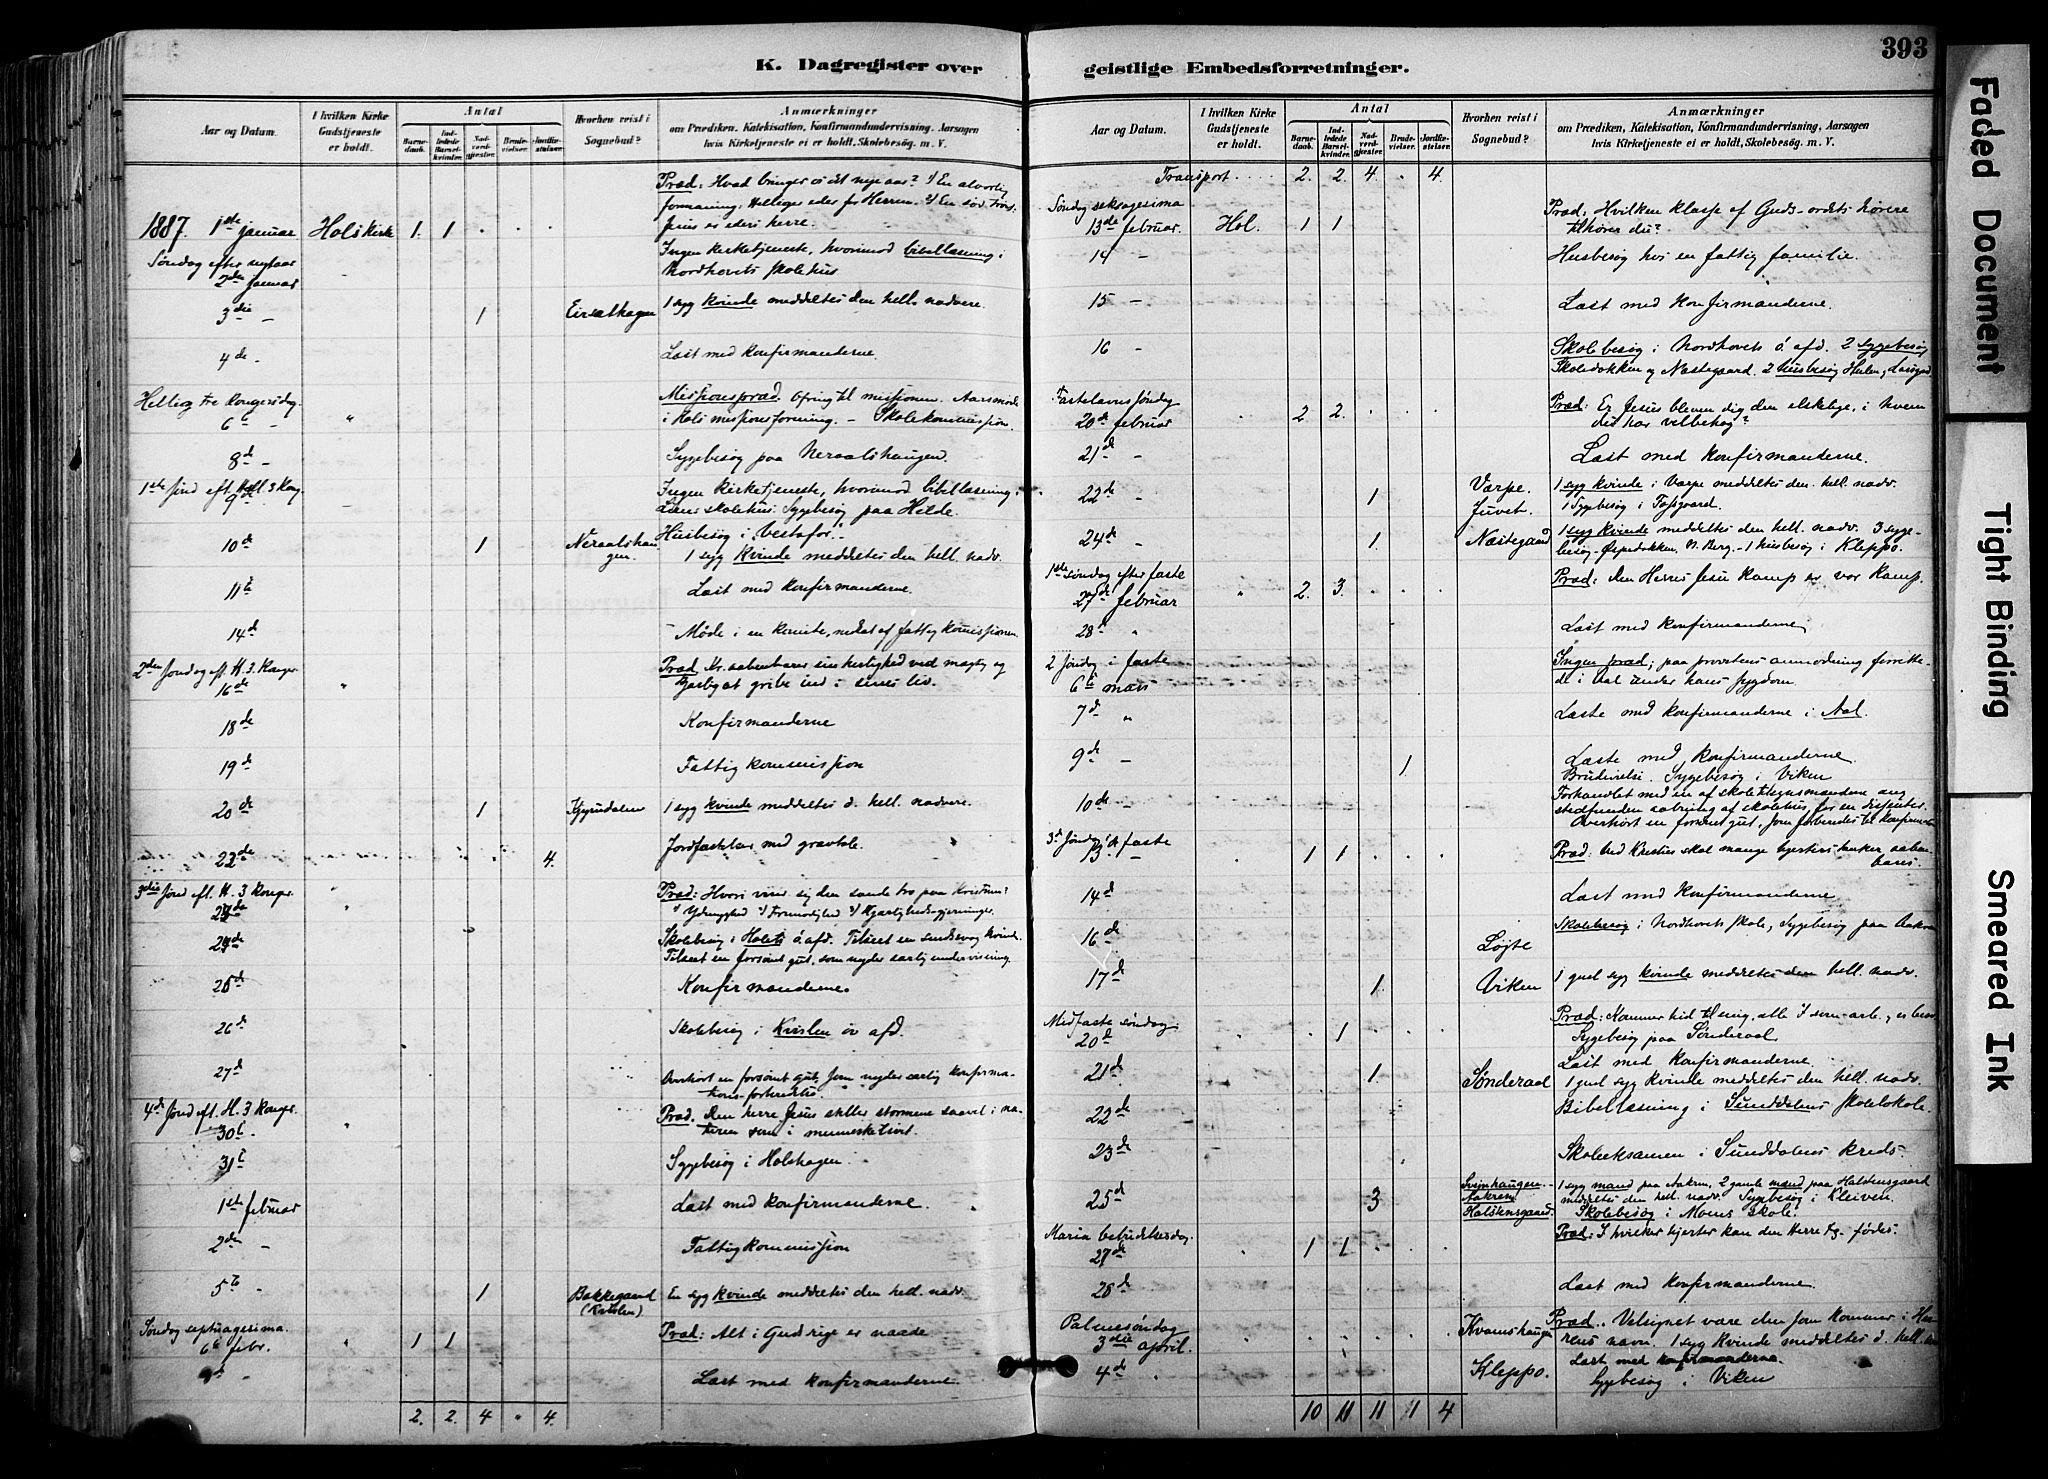 K. Dagregister over
Aar og Datum.
I hvilken Kirke Gudstjeneste er holdt.
Antal
Barne-daab.
Ind-ledede Barsel-kvinder.
Nad-verd-gjester.
Brude-vielser.
Jordfæ-stelser.
Hvorhen reist i Sognebud?
Anmærkninger
om Prædiken, Katekisation, Konfirmandundervisning, Aarsagen
hvis Kirketjeneste ei er holdt, Skolebesög m. V.
Præd: Hvad bringer os det nye aar? 1) En alvorlig
formaning: Helliger eder for Herren. 2) En
1887. 1ste januar Hols kirke 1. 1 . . . Jesus er eders herre.
Søndag efter nytaar Ingen kirketjeneste, hvorimod bibellæsning i
2den januar Nordhovets skolehus
3die - 1 1 syg kvinde meddeltes den hell. nadvere.
4de - Læst med konfirmanderne.
Hellig tre Kongersdag Missionspræd. Ofring til missionen. Aarsmøde
6te - " i Hols missionsforening. - Skolekommission.
8de - Sygebesøg paa Neraalshaugen.
1ste Sønd eft. H. 3 Kong. Ingen kirketjeneste, hvorimod bibellæsning i
9de skolehus. Sygebesøg paa Helde.
10de 1 Neraalshau-gen Husbesøg i Vestafor.
1 syg kvinde meddeltes den hell. nadv.
11te Læst med konfirmanderne.
14de Møde i en komite, nedsat af fattigkommissionen.
2den Søndag eft. H. 3 Konger. Præd.
16de " gribe ind i livs.
18de Konfirmanderne
19de Fattigkommission
20de 1 1 syg kvinde meddeltes d. hell. nadvere.
22de 4. Jordfæstelse med gravtale.
3die Sønd eft. H. 3 Konger. Præd: Hvori viser sig den sande tro paa Kristum:
" 1) Ydmyghed 2) Frimodighed 3) Kjærlighedsgjerninger.
24de Skolebesøg i Holets ø. afd. Tilseet en sindssvag kvinde.
Tilseet en forsømt gut, som nyder særlig undervisning.
25de Konfirmanderne.
26de Skolebesøg i Kvislen øv afd.
27de Overhørt en forsømt gut, som nyder særlig konfirma-
4de Sønd eft. H. 3 Konger. Præd. Den herre Jesus stiller stormene saavel i na-
30te " turen som i menneskelivet.
31te Sygebesøg i Holshagen.
1ste februar Læst med konfirmanderne.
2den - Fattigkommission
5te - 1 Bakkegaard (Kvislen) En syg kvinde meddeltes den hell. nadv.
Søndag septuagesima. Præd: Alt i Guds rige er naade
6te febr. " 1 1
- Læst med konfirmanderne.
2. 2. 4 " 4.
geistlige Embedsforretninger.
393
Aar og Datum.
I hvilken Kirke Gudstjeneste er holdt.
Antal
Barne-daab.
Ind-ledede Barsel-kvinder.
Nad-verd-gjester.
Brude-vielser.
Jordfæ-stelser.
Hvorhen reist i Sognebud?
Anmærkninger
om Prædiken, Katekisation, Konfirmandundervisning, Aarsagen
hvis Kirketjeneste ei er holdt, Skolebesög m. V.
Transport .... 2. 2. 4. . 4.
Søndag seksagesima Præd: Hvilken klasse af Guds-ordets hørere
13de februar. Hol. 1 1 tilhører du?
14 - Husbesøg hos en fattig familie.
15 - Læst med konfirmanderne.
16 - Skolebesøg i Nordhovets ø. afd. 2 sygebesøg
Skoledokken og Næstegaard. 2 husbesøg
Fastelavnssøndag Præd: Er Jesus bleven dig den elskelige, i hvem
20de februar " 2 2. . . . du har velbehag?
21de - Læst med konfirmanderne.
22de - 1 Værpe. Juvet. 1 syg kvinde i Værpe meddeltes den hell. nadv.
1 Sygebesøg i Tofsgaard.
24de - 1. Næstegaard 1 syg kvinde meddeltes den hell. nadv. 3 syge-
besøg - N. Berg. - 1 husbesøg i Kleppo.
1ste søndag efter faste Præd: Den Herres Jesu kamp er vor kamp.
27de februar " 2. 3. . . .
28de " Læst med konfirmanderne,
2 Søndag i faste Ingen præd; paa provstens anmodning forrette-
6te mars de i Aal under hans sygdom.
7de " Læste med konfirmanderne i Aal.
9de - 1 Læste med konfirmanderne.
Brudevielse. Sygebesøg i Viken
10de - Forhandlet med en af skoletilsynsmændene ang
aabning af skolehus, for en dissenter.
Overhørt en forsømt gut, som forberedes til konfirmation
3de Søndag i faste
13de - . 1 1 . . . Præd: Ved Kristus skal mange hjerters tanker aaben-
bares.
14de Læst med konfirmanderne
16de Løjte Skolebesøg i Nordhovets skole, Sygebesøg paa
17de 1. Viken 1 gml syg kvinde meddeltes den hell. nadv.
Midfaste søndag. Præd: Kommer hid til mig, alle I som arb. og er besv.
20de . 1 . . . Sygebesøg paa Sønderaal
21de 1. Sønderaal Læst med konfirmanderne
1 gml syg kvinde meddeltes den hell. nadv.
22de Bibellæsning i Sunddalens skolelokale.
23de Skoleeksamen i Sunddalens kreds-
25de 3 Sveinhaugen. Aakren Halstensgaard. 1 syg mand paa Aakren, 2 gamle mænd paa Halstensgaard
meddeltes den hell. nadv. Sygebesøg i Kleiven.
Skolebesøg i Moens skole.
Maria budskabsdag. Præd: I hvilke hjerter kan den Herre fødes.
27de " 1 1 . . .
28de Læst med konfirmanderne.
Palmesøndag Præd.. Velsignet være den som kommer i Her-
3die april. Kvamshaugen rens navn. 1 syg kvinde meddeltes d. hell.
4de Kleppo. Læst med konfirmanderne.
Sygebesøg i Viken
10 11 11 1 4
Faded Document
Tight Binding
Smeared Ink